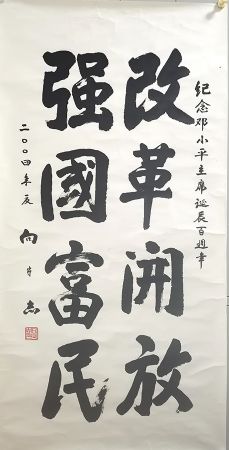 纪念邓小平主席诞辰百週年
改革开放
强國富民
二〇〇四年夏
向守志